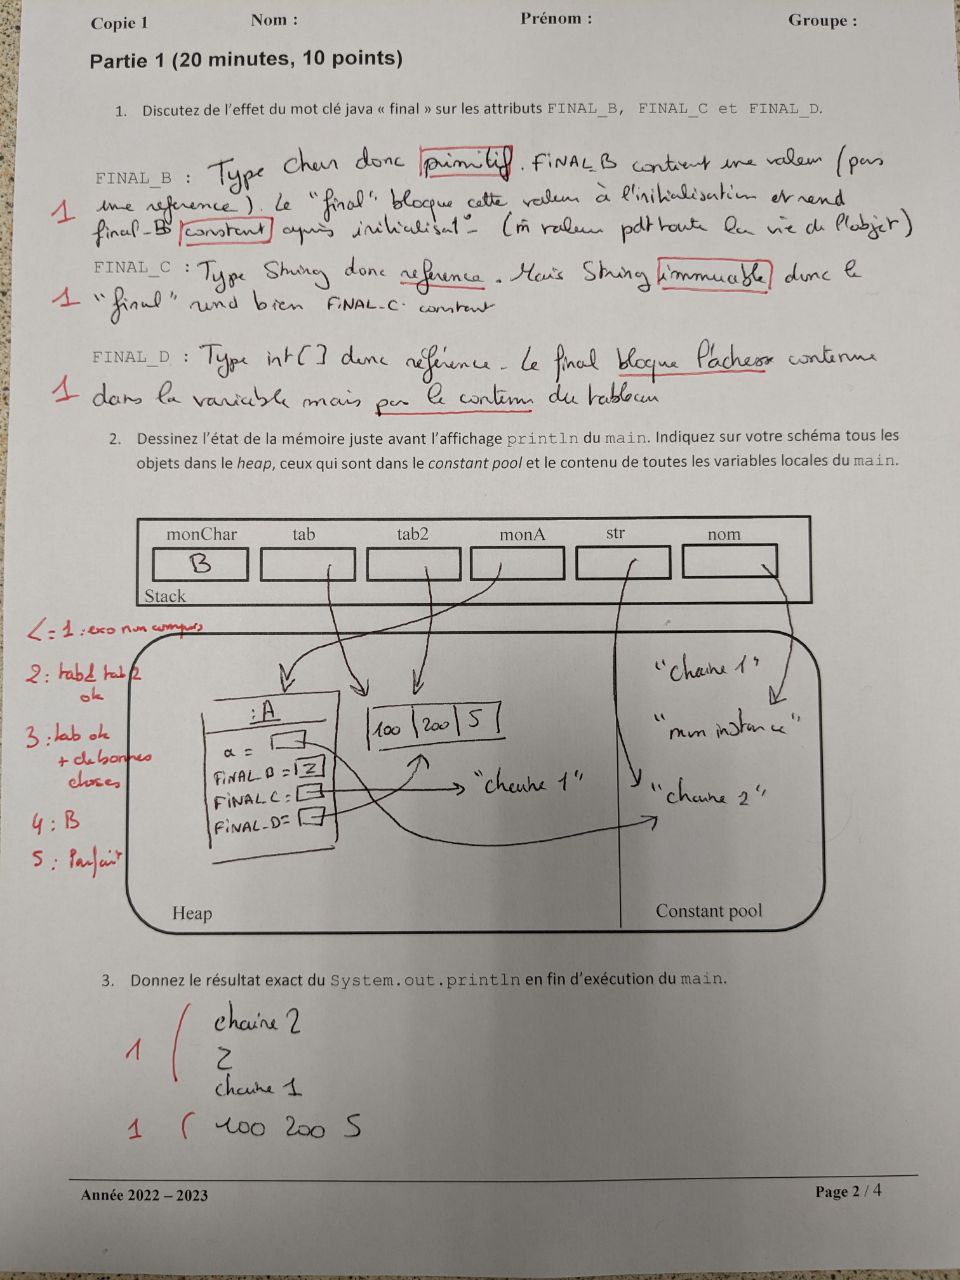 Copie 1 Nom : Prénom : Groupe :
Partie 1 (20 minutes, 10 points)
1. Discutez de l'effet du mot clé java « final » sur les attributs FINAL_B, FINAL_C et FINAL_D.
FINAL_B : Type char donc primitif. FINAL_B contient une valeur (pas
1 une reference). Le "final" bloque cette valeur à l'initialisation et rend
final_B constant après initialisat° (m̂ valeur pdt toute la vie de l'objet)
FINAL_C : Type String donc reference. Mais String immuable donc le
1 "final" rend bien FINAL_C constant
FINAL_D : Type int[] donc référence. Le final bloque l'adresse contenue
1 dans la variable mais pas le contenu du tableau
2. Dessinez l'état de la mémoire juste avant l'affichage println du main. Indiquez sur votre schéma tous les
objets dans le heap, ceux qui sont dans le constant pool et le contenu de toutes les variables locales du main.
monChar tab tab2 monA str nom
B
Stack
<=1 : exo non compris
2 : tab & tab 2
ok
3 : tab ok
+ de bonnes
choses
4 : B
5 : Parfait
: A
a =
FINAL_B = Z
FINAL_C =
FINAL_D =
100 200 5
"chaine 1"
"chaine 1"
"mon instance"
"chaine 2"
Heap Constant pool
3. Donnez le résultat exact du System.out.println en fin d'exécution du main.
chaine 2
1 Z
chaine 1
1 100 200 5
Année 2022 – 2023 Page 2 / 4